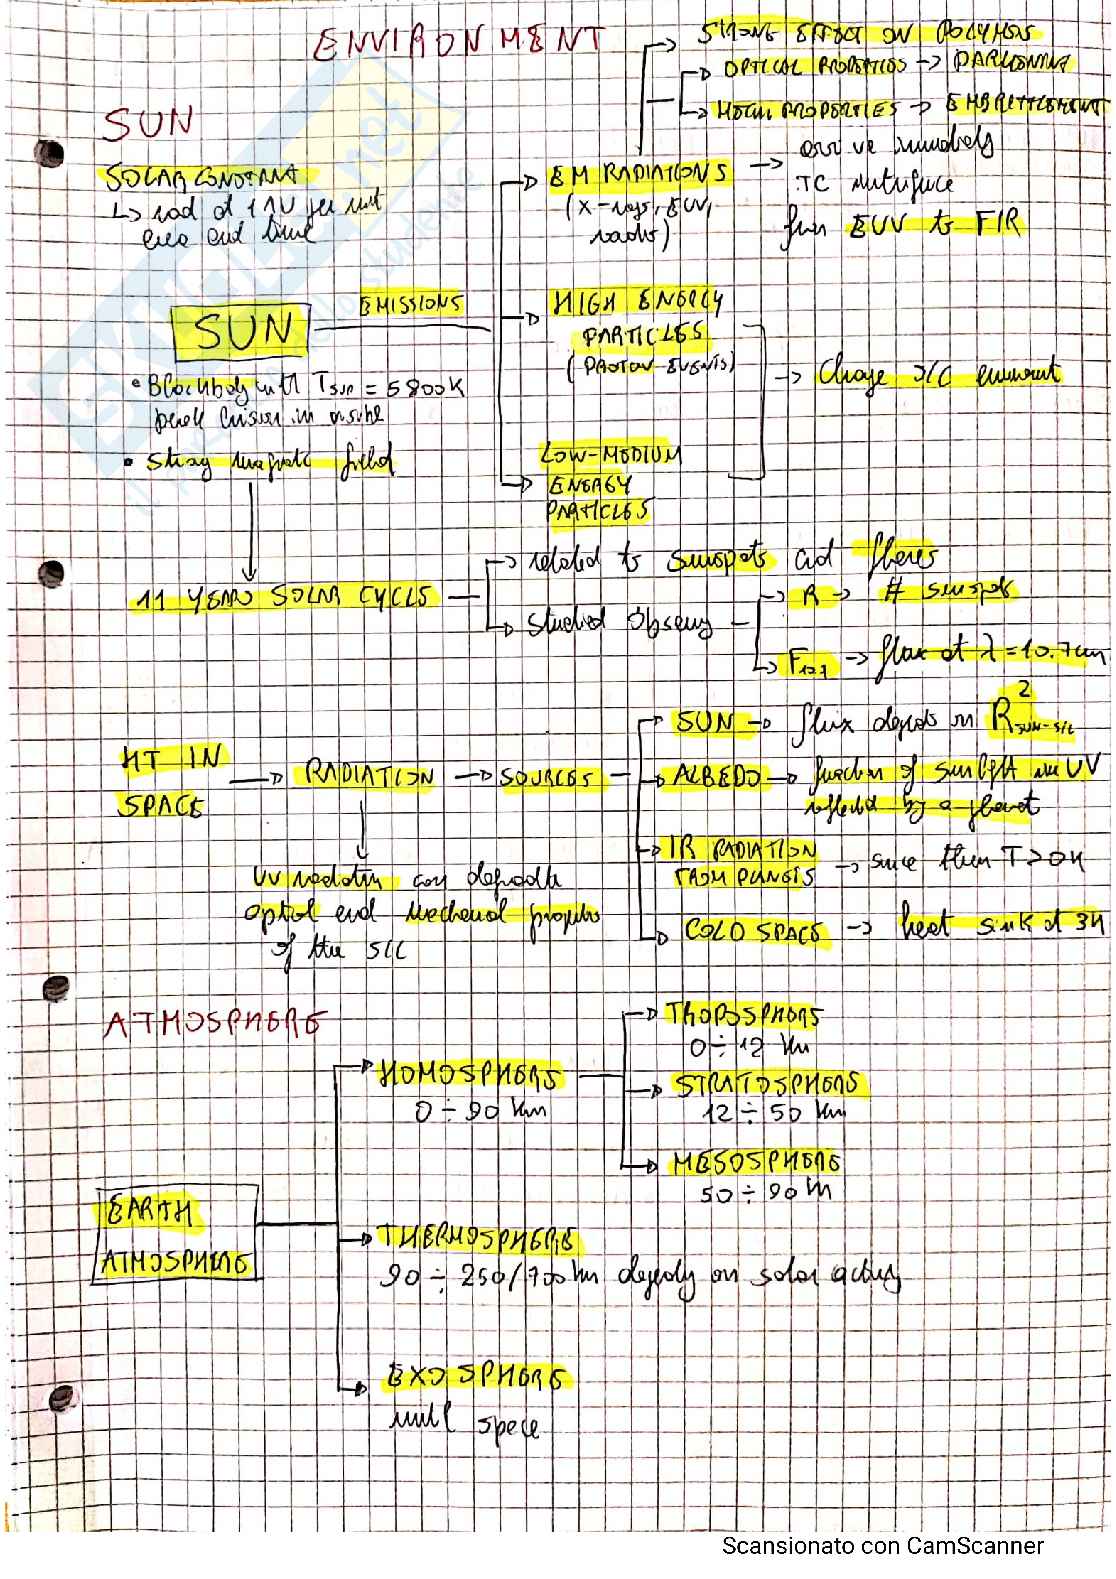 ENVIRONMENT
STRONG EFFECT ON POLYMERS
OPTICAL PROPERTIES → DARKENING
MECH PROPERTIES → EMBRITTLEMENT
SUN
SOLAR CONSTANT
↳ rad at 1 AU per unit
area and time
EM RADIATIONS →
(x-rays, EUV,
radio)
TC
from EUV to FIR
SUN
EMISSIONS
HIGH ENERGY
PARTICLES
(PROTON EVENTS)
→ Charge S/C
• Blackbody with Tsun = 5800K
peak in visible
• Strong magnetic field
LOW-MEDIUM
ENERGY
PARTICLES
11 YEARS SOLAR CYCLE
→ related to sunspots and flares
→ studied
→ R → # sunspots
→ F10.7 → flux at λ = 10.7cm
HT IN
SPACE
→ RADIATION → SOURCES
→ SUN → flux depends on R²SUN-S/C
→ ALBEDO → fraction of sunlight UV
reflected by a planet
→ IR RADIATION
FROM PLANETS → since then T>0K
→ COLD SPACE → heat sink at 3K
UV radiation can degradate
optical and mechanical properties
of the S/C
ATMOSPHERE
→ TROPOSPHERE
0 ÷ 12 km
→ HOMOSPHERE
0 ÷ 90 km
→ STRATOSPHERE
12 ÷ 50 km
→ MESOSPHERE
50 ÷ 90 km
EARTH
ATMOSPHERE
→ THERMOSPHERE
90 ÷ 250/700 km on solar activity
→ EXOSPHERE
until space
Scansionato con CamScanner